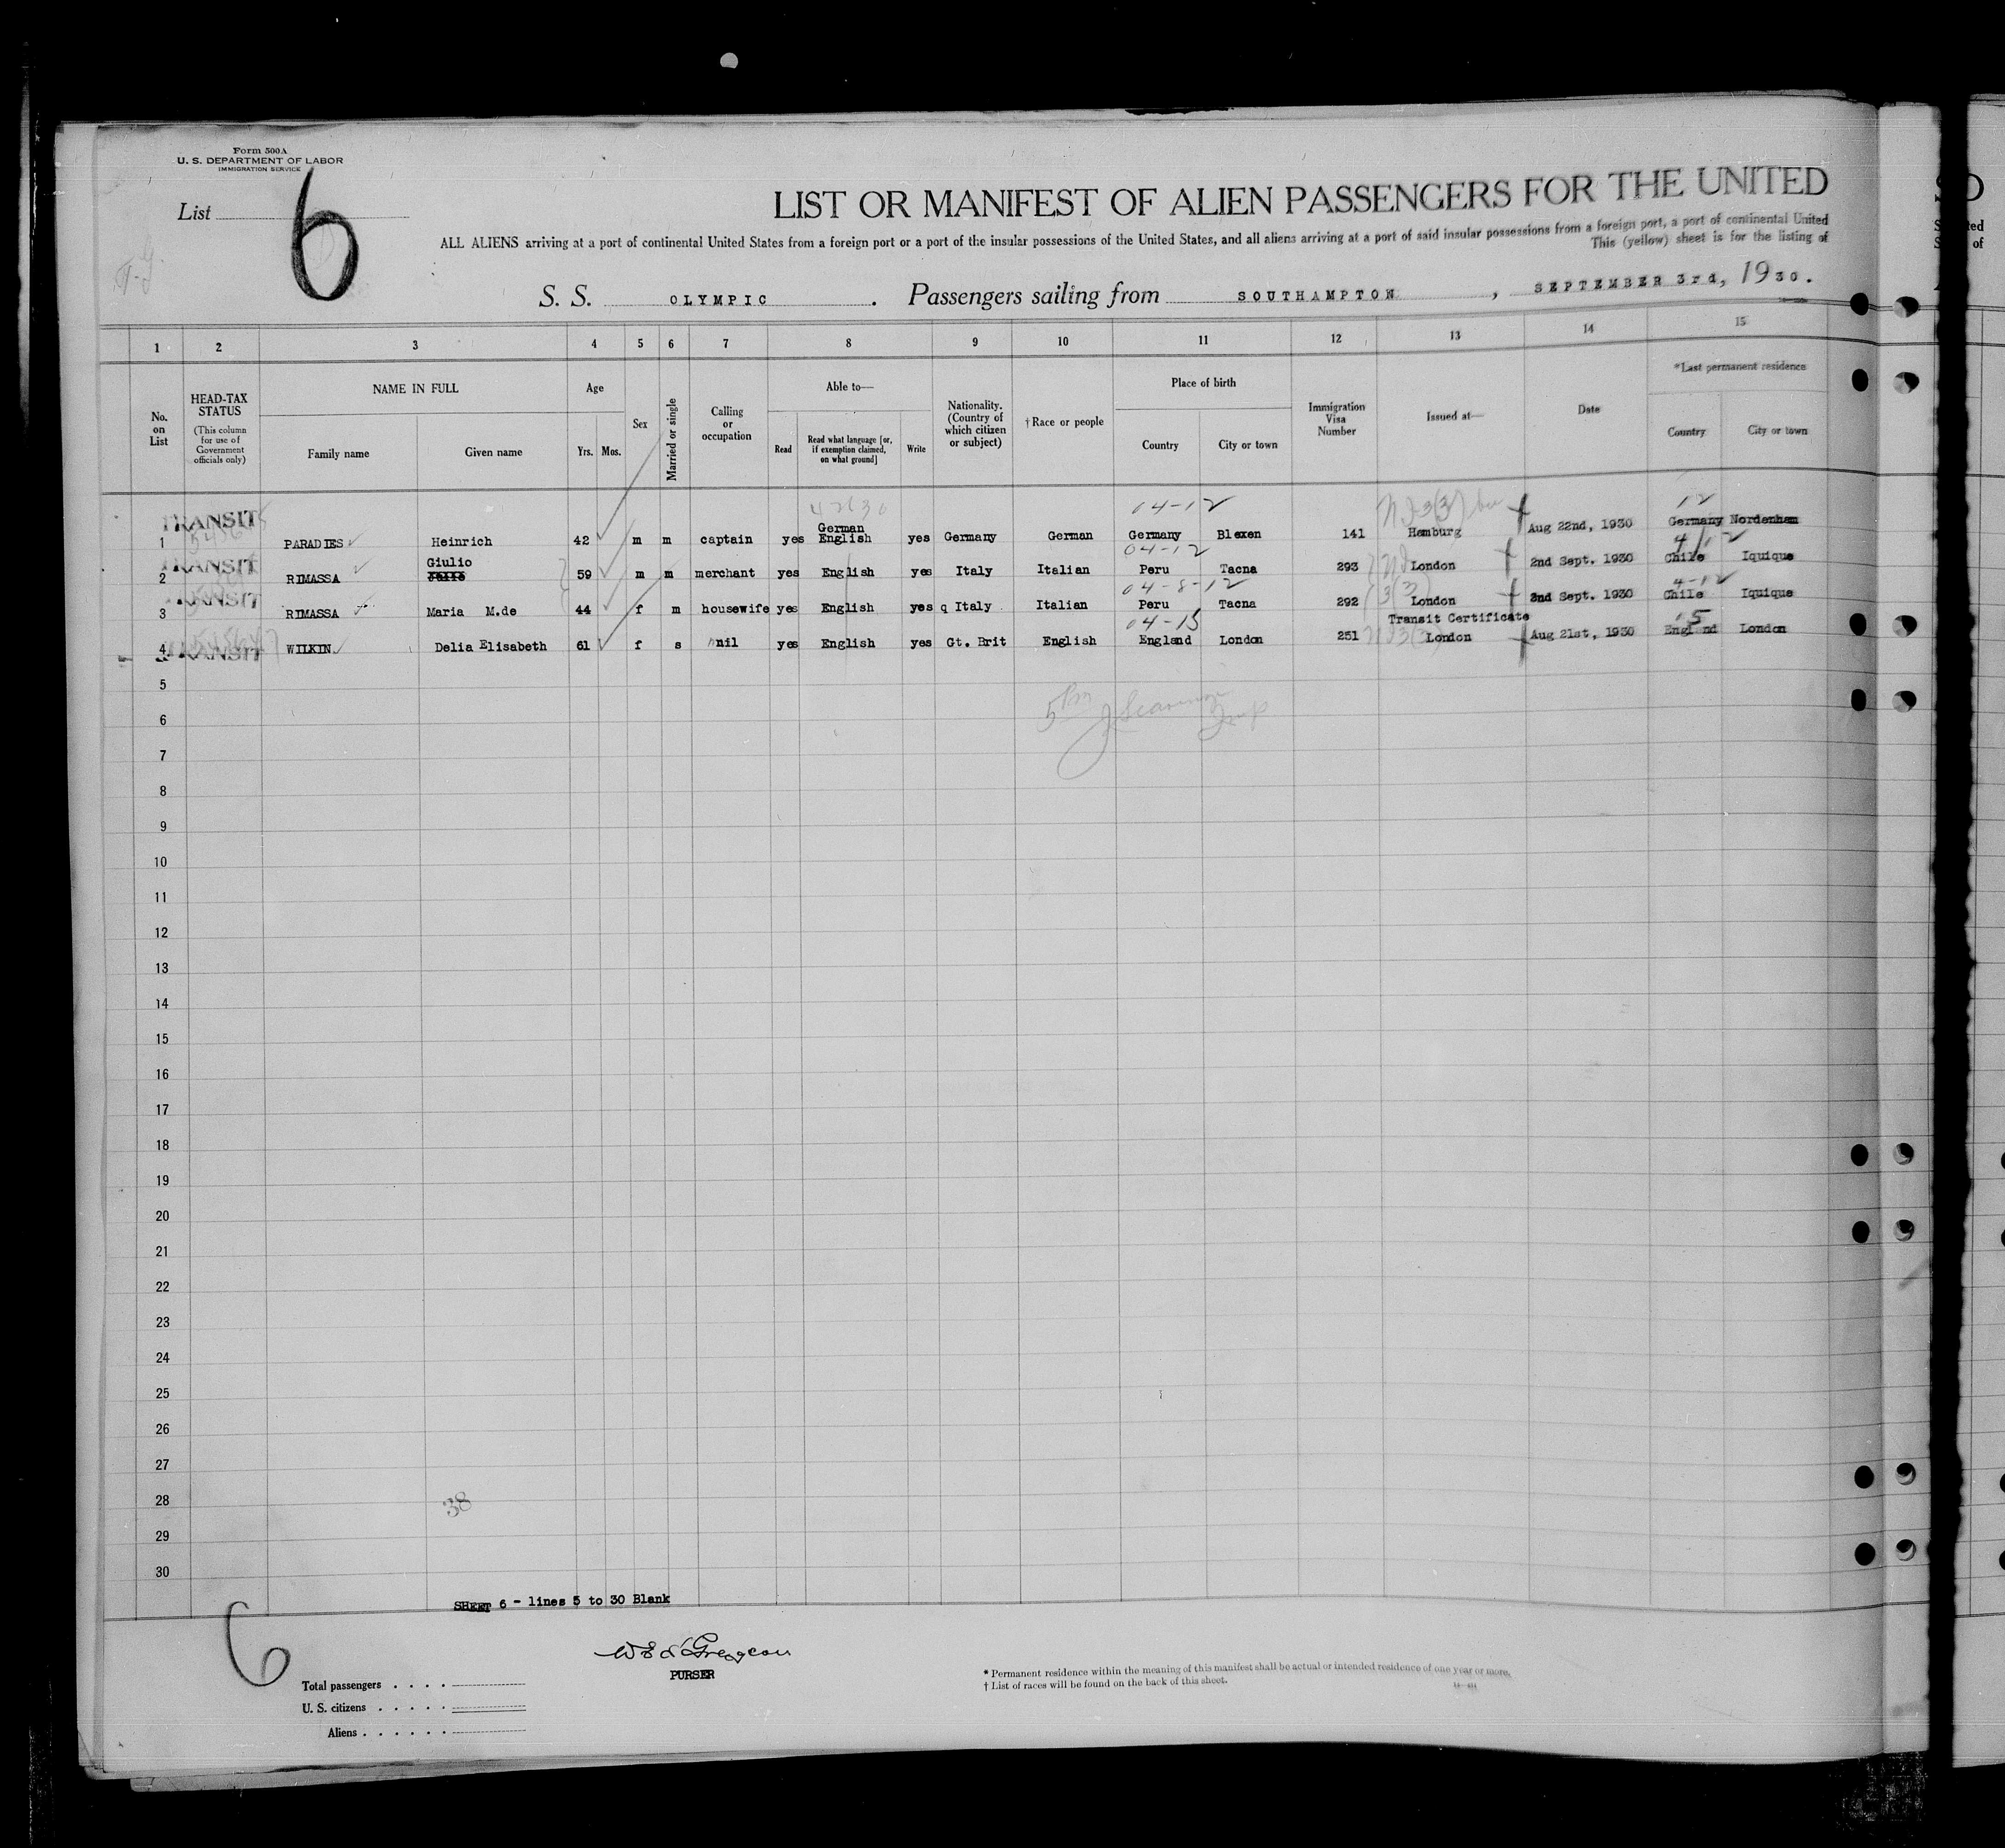 Form 500A
U. S. DEPARTMENT OF LABOR
IMMIGRATION SERVICE
List 6
LIST OR MANIFEST OF ALIEN PASSENGERS FOR THE UNITED
ALL ALIENS arriving at a port of continental United States from a foreign port or a port of the insular possessions of the United States, and all aliens arriving at a port of said insular possessions from a foreign port, a port of continental United
This (yellow) sheet is for the listing of
S. S. OLYMPIC . Passengers sailing from SOUTHAMPTON , SEPTEMBER 3rd, 1930.
1 2 3 4 5 6 7 8 9 10 11 12 13 14 15
No. on List
HEAD-TAX STATUS
(This column for use of Government officials only)
NAME IN FULL
Family name Given name
Age
Yrs. Mos.
Sex
Married or single
Calling or occupation
Able to—
Read Read what language [or, if exemption claimed, on what ground] Write
Nationality. (Country of which citizen or subject)
† Race or people
Place of birth
Country City or town
Immigration Visa Number
Issued at—
Date
*Last permanent residence
Country City or town
04-12 12
TRANSIT German
1 PARADIES Heinrich 42 m m captain yes English yes Germany German Germany Blexen 141 Hamburg Aug 22nd, 1930 Germany Nordenham
04-12 4/12
TRANSIT Giulio
2 RIMASSA 59 m m merchant yes English yes Italy Italian Peru Tacna 293 London 2nd Sept. 1930 Chile Iquique
04-8-12 4-12
TRANSIT
3 RIMASSA Maria M.de 44 f m housewife yes English yes q Italy Italian Peru Tacna 292 London 2nd Sept. 1930 Chile Iquique
04-15 Transit Certificate 15
4 WILKIN Delia Elisabeth 61 f s nil yes English yes Gt. Brit English England London 251 London Aug 21st, 1930 England London
TRANSIT
5
6
7
8
9
10
11
12
13
14
15
16
17
18
19
20
21
22
23
24
25
26
27
28
38
29
30
SHEET 6 - lines 5 to 30 Blank
6
PURSER
Total passengers
U. S. citizens
Aliens
* Permanent residence within the meaning of this manifest shall be actual or intended residence of one year or more.
† List of races will be found on the back of this sheet.